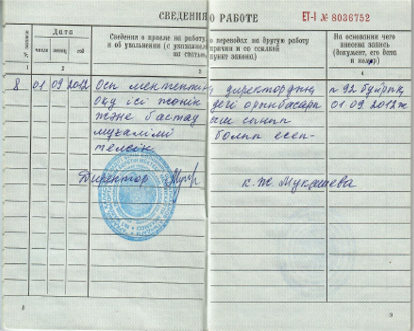 СВЕДЕНИЯ О РАБОТЕ ЕТ-I № 8036752
№ записи
Дата
число
месяц
год
Сведения о приеме на работу, о переводах на другую работу
и об увольнении (с указанием причин и со ссылкой
на статью, пункт закона)
На основании чего
внесена запись
(документ, его дата
и номер)
1 2 3 4
8 01 09 2012 Осы мектептің директордың № 92 бұйрық
оқу ісі жөнін дегі орынбасары 01 09 2012ж
және бастау ыш сынып
мұғалімі болып есеп-
телсін
Директор К. Ж. Мукашева
8
9